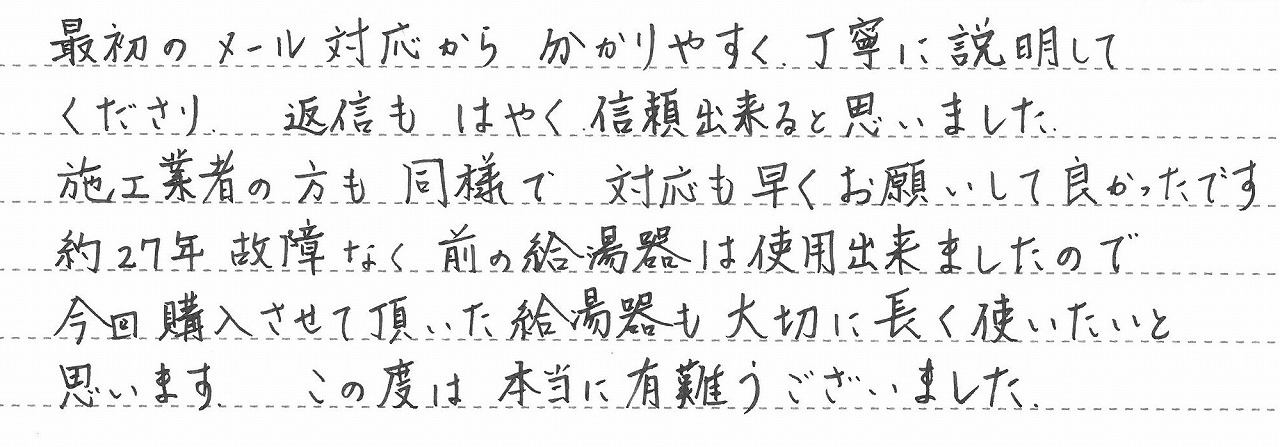 最初のメール対応から 分かりやすく、丁寧に説明して
くださり、 返信も はやく、信頼出来ると思いました。
施工業者の方も 同様で 対応も早くお願いして良かったです
約27年 故障なく 前の給湯器は使用出来ましたので
今回購入させて頂いた給湯器も大切に長く使いたいと
思います。 この度は 本当に有難うございました。